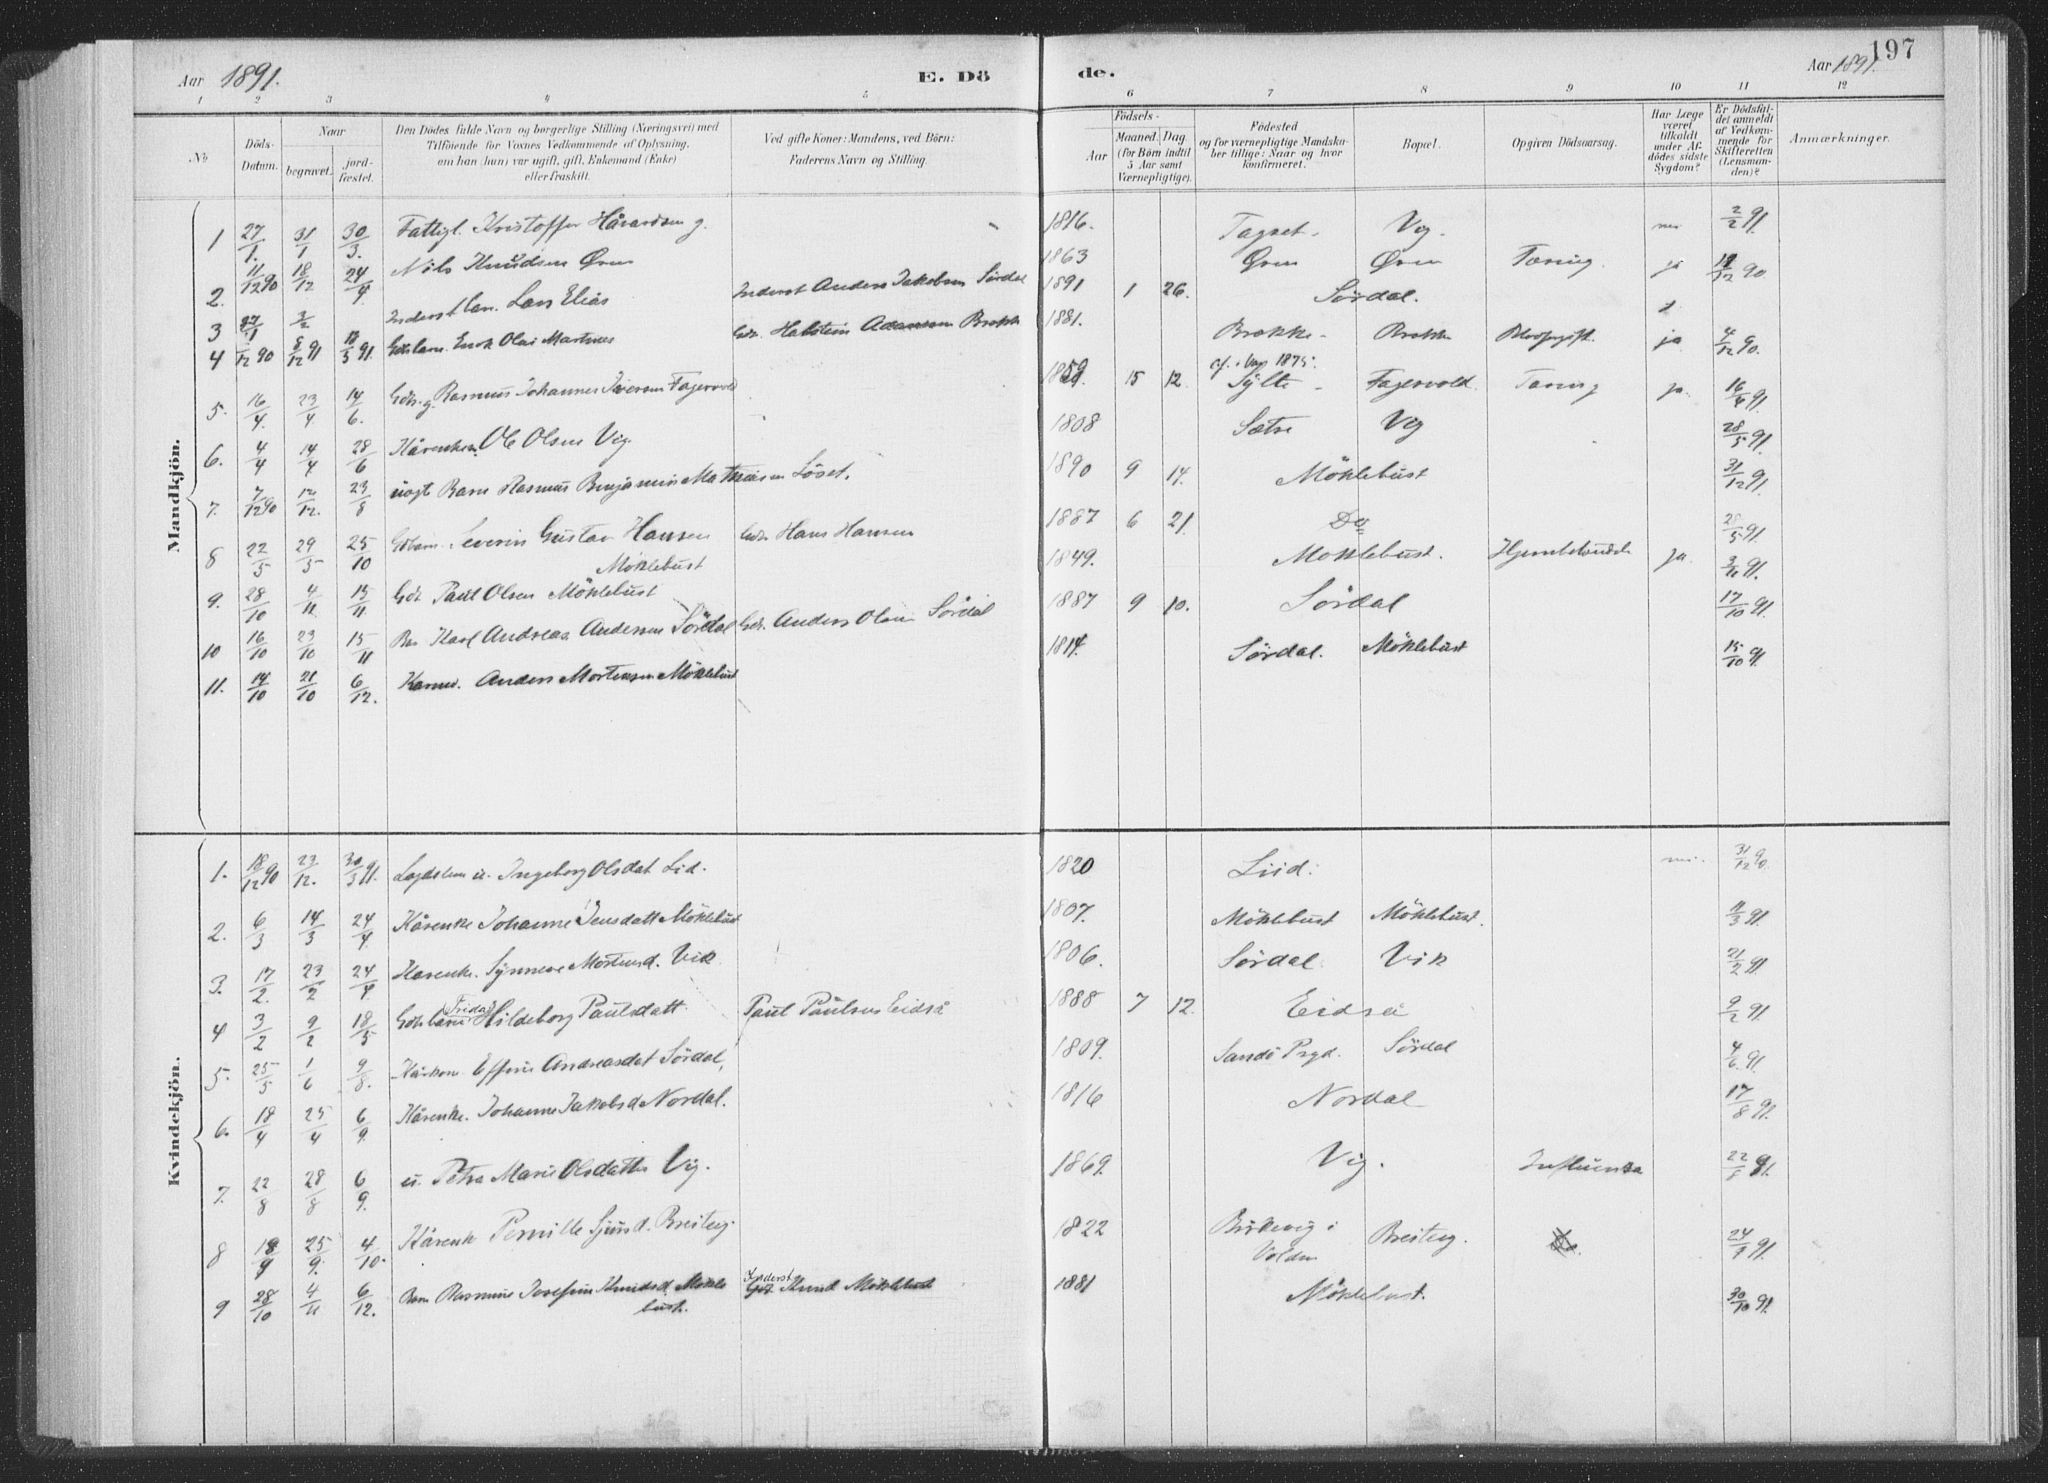 Aar 1891. E. Dö de. Aar 1891. 197
1 2 3 4 5 6 7 8 9 10 11 12
No Döds-Datum. Naar begravet. jordfæstet. Den Dödes fulde Navn og borgerlige Stilling (Næringsvei) med Tilföiende for Voxnes Vedkommende af Oplysning, om han (hun) var ugift, gift, Enkemand (Enke) eller fraskilt. Ved gifte Koner: Mandens, ved Börn: Faderens Navn og Stilling. Födsels- Aar Maaned. Dag. (for Börn indtil 5 Aar samt Værnepligtige). Födested og for værnepligtige Mandskaber tillige: Naar og hvor konfirmeret. Bopæl. Opgiven Dödsaarsag. Har Læge været tilkaldt under Afdödes sidste Sygdom? Er Dödsfaldet anmeldt af Vedkommende for Skifteretten (Lensmanden)? Anmærkninger.
Mandkjön.
1 27/1. 31/1 30/3. Fattigl. Kristoffer Håvardsen g. 1816. Vig. nei 2/2 91
2. 11/12 90 18/12 24/4 Nils Knudsen Øren 1863 Ören Ören Tæring. ja 18/12 90
3 27/1 3/2 Inderstbarn. Lars Elias Inderst Anders Jakobsen Sördal 1891 1 26. Sördal.
4 /12 90 8/12 91 18/5 91. Gdbbarn. Enok Olai Martinus Gdr. Halstein Adamsen Brekke 1881. Brekke Brekke Blodforgift. ja 4/12 90.
5. 16/4 23/4 14/6. Gdr. g. Rasmus Johannes Iversen Fagervold 1859 15 12. cf. i Vigs 1875. Sylte Fagervold. Tæring ja. 16/4 91.
6. 4/4 14/4 28/6 Kårenkem. Ole Olsen Vig. 1808 Sætre Vig 28/5 91.
7. 7/12 90 12/12. 23/8 uægt Barn Rasmus Benjamin Mathiasen Löset. 1890 9 14. Möklebust 31/12 91.
8 22/5 29/5 25/10 Gdbarn. Severin Gustav Hansen Möklebust Gdr. Hans Hansen 1887 6 21. Do 28/5 91
9. 28/10 4/11 15/11 Gdr. Paul Olsen Möklebust 1849. Möklebust. Hjernebetændelse ja. 3/10 91.
10 16/10 23/10 15/11 Barn Karl Andreas Andersen Sördal Gdr. Anders Olsen Sördal 1887 9 10. Sördal 17/10 91.
11. 14/10 21/10 6/12. Kårm. Anders Mortensen Möklebust 1814. Sördal. Möklebust 15/10 91
Kvindekjön.
1. 18/12 90 23/12. 30/3 91. Lægdslem u. Ingeborg Olsdat Lid. 1820 Liid. nei. 31/12 90.
2. 6/3 14/3 24/4. Kårenke Johanne Jensdatt Möklebust 1807. Möklebust Möklebust. 11/3 91.
3. 17/2. 23/2 24/4 Kårenke. Synneve Mortensd. Vik 1806. Sördal. Vik 21/2 91
4 3/2 9/2 18/5 Gdrbarn Frida Hildeborg Paulsdatt. Paul Paulsen Eidså 1888 7 12. Eidså 9/2 91.
5. 25/5 1/6 9/8. Kårkone. Effrine Andreasdat Sördal, 1809. Sandö Prgd. Sördal 4/6 91.
6. 18/4 25/4 6/9. Kårenke. Johanne Jakobsd Nordal. 1816 Nordal 17/8 91.
7. 22/8 28/8 6/9. u. Petra Marie Olsdatter Vig. 1869. Vig. Influensa 22/8 91.
8 18/9 25/9. 4/10. Kårenk Pernille Sjursd. Breiteig. 1822 Birkevig i Volden Breiteig. 24/9 91.
9 28/10 4/11 6/12. Barn Rasmine Josefine Knudsd Möklebust. Inderst Knud Möklebust 1881 Möklebust. 30/10 91.